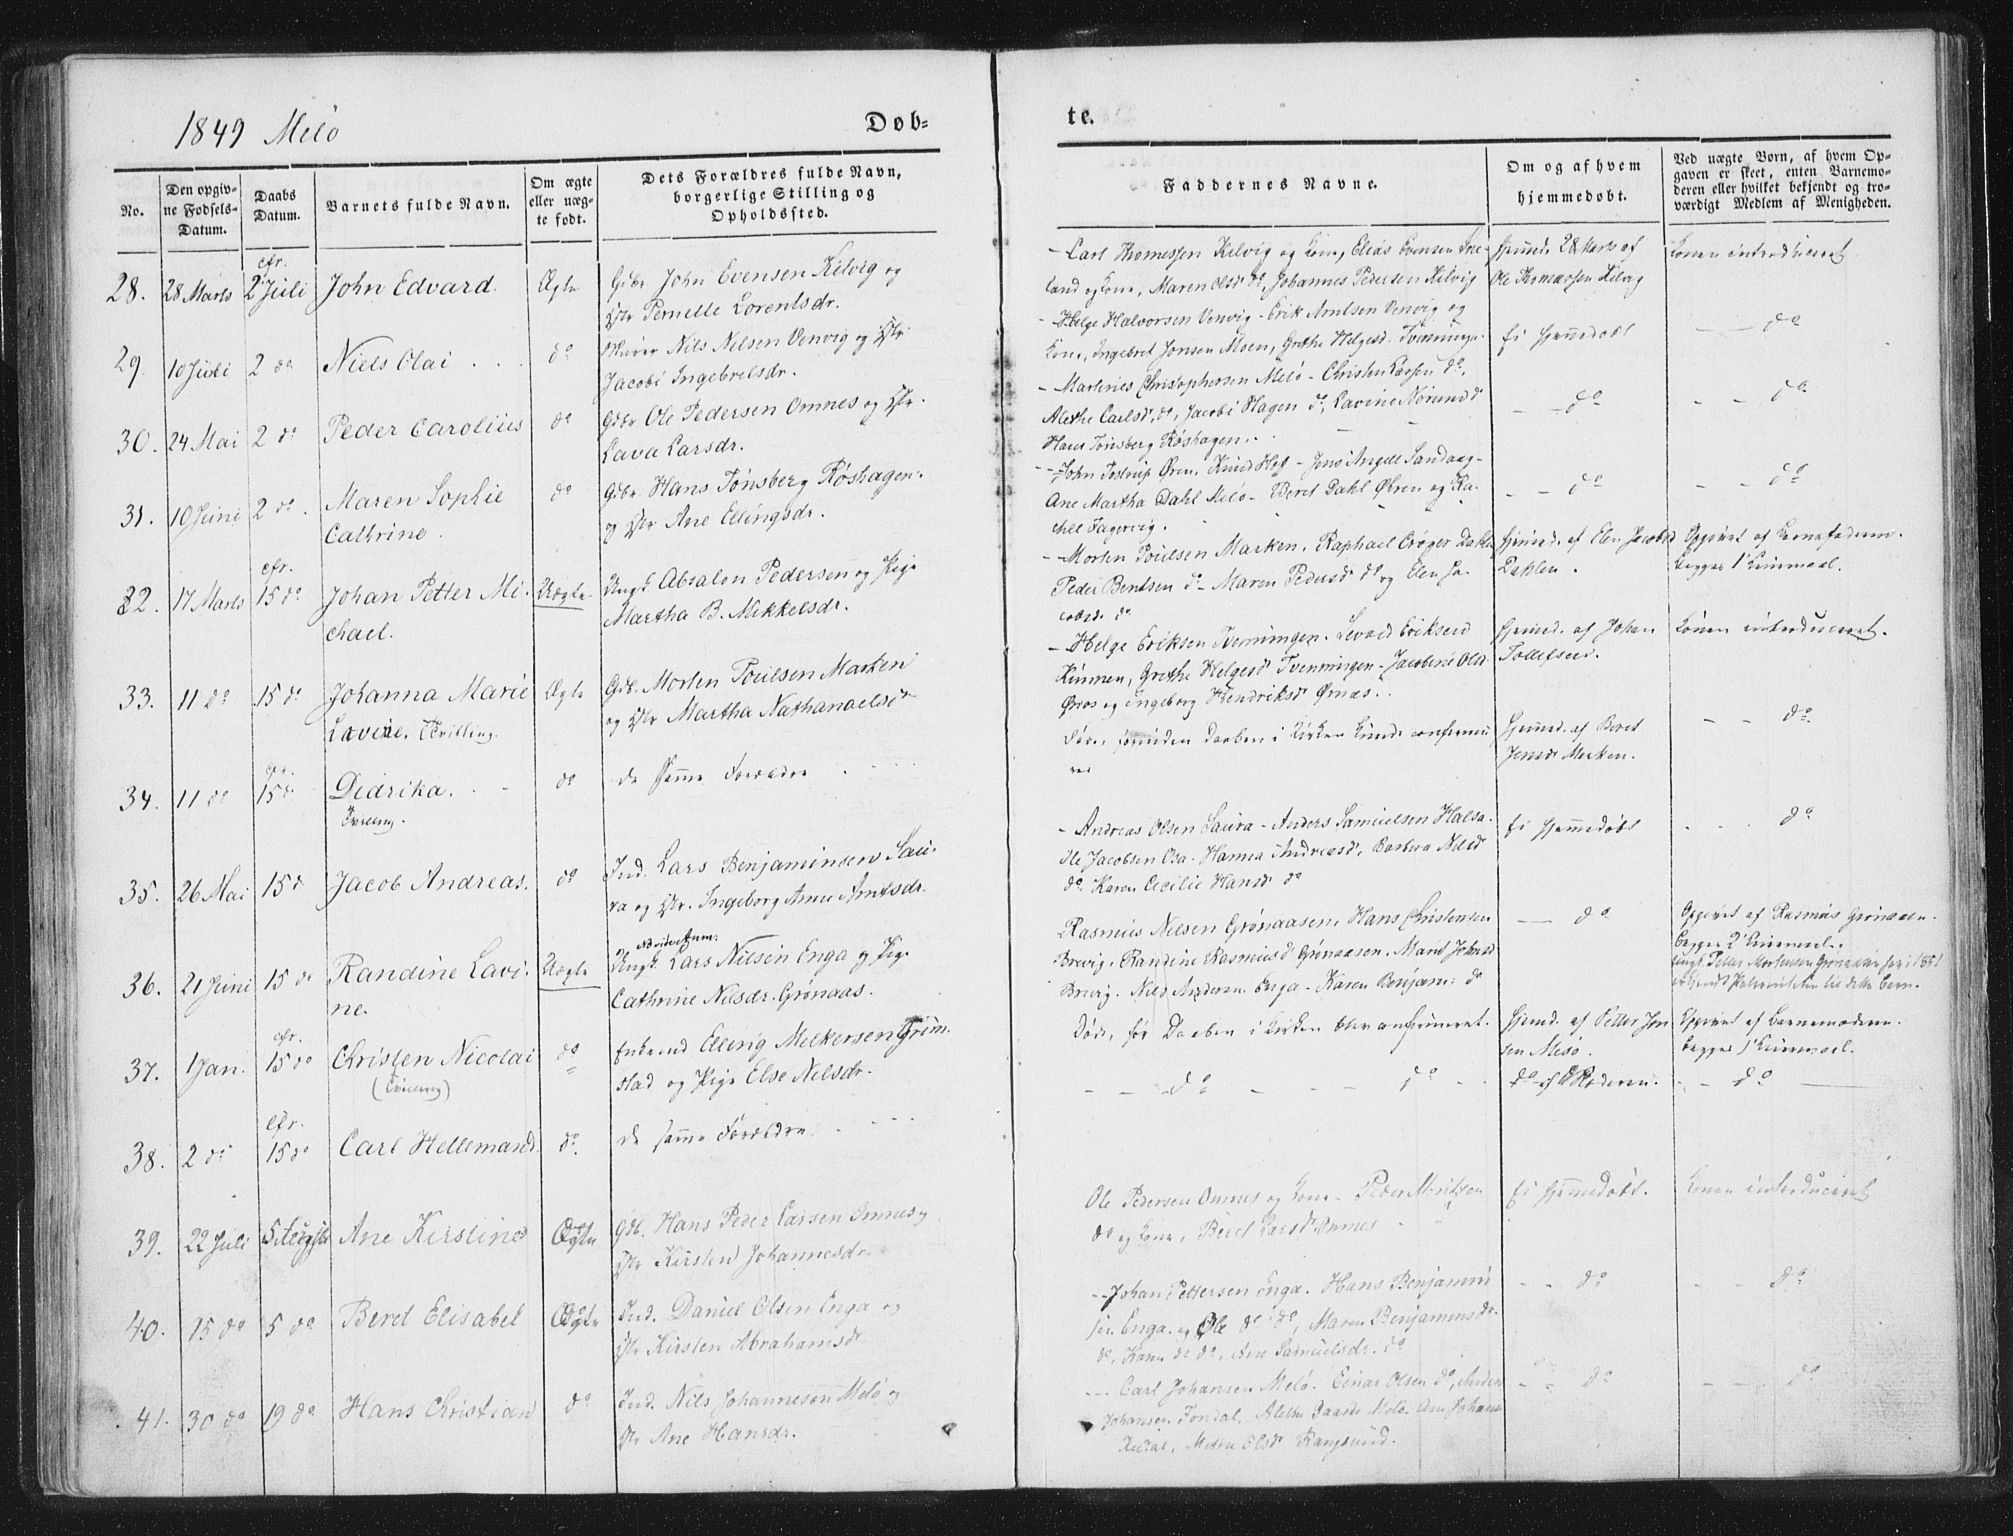 1849 Melö
Døb-
te.
No.
Den opgiv-
ne Fødsels-
Datum.
Daabs
Datum.
Barnets fulde Navn.
Om ægte
eller uæg-
te født.
Dets Forældres fulde Navn,
borgerlige Stilling og
Opholdssted.
Faddernes Navne.
Om og af hvem
hjemmedøbt.
Ved uægte Børn, af hvem Op-
gaven er skeet, enten Barnemo-
deren eller hvilket bekjendt og tro-
værdigt Medlem af Menigheden.
28. 28 Marts cfr. 2 Juli John Edvard. Ægte
Gdbr John Evensen Kilvig og
Hr Pernelle Lorentsdr.
- Carl Thomessen Kilvig og Kone, Elias Evensen
land og Kone, Maren Olsd do, Johannes Pedersen Kilvig
Hjemd. 28 Marts af
Ole Thomassen Kilvig
Konen introduceret
29. 10 Juli 2 do Niels Olai do
Nils Nilsen Venvig og Hr
Jacobi Ingebretsdr.
- Helge Halvorsen Venvig - Erik Arntsen Venvig og
Kone, Ingebret Jonsen Moen, Grethe Helgesd. Tvenninge.
Ei hjemmedøbt
- - do
30. 24 Mai 2 do Peder Carolius do
Gdbr Ole Pedersen Omnes og Hr.
Lava Larsdr.
- Martinies Christophersen Melö - Christen Larsen do,
Alethe Carlsd. do, Jacobi Hagen do, Lavine
Hans Tönsberg Röshagen.
- - do
- - do
31. 10 Juni 2 do. Maren Sophie
Cathrine. do
Gdbr. Hans Tönsberg Röshagen
og Hr Ane Ellingsdr.
- John Tostrup Ören. Knud Hof - Jens Angell Sandaag -
Ane Martha Dahl Melö - Beret Dahl Ören og Ka-
Fagervig.
- - do
- - do
32. 17 Marts cfr. 15 do Johan Petter Mi-
chael. Uægte
Ungk. Absalon Pedersen og Pige
Martha B. Mikkelsdr.
- Morten Poulsen Marken. Raphael Dahlen
Peder Bentsen do - Maren Pedersd do og Elen Ja-
cobsd. do
Hjemd. af Elen Jacobsd
Dahlen.
Opgivet af Barnefaderen.
begges 1ste Leiermaal.
33. 11 do 15 do Johanna Marie
Lavine. Tvilling. Ægte
Gdb. Morten Poulsen Marken
og Hr Martha Nathanaelsd
- Helge Eriksen Tvenningen. Eriksen
Kinnen, Grethe Helgesd Tvenningen - Jacobine Olsd
og Ingeborg Hendriksd Ørnæs.
Hjemd. af Johan
Tollefsen.
Konen introduceret.
34. 11 do 15 do Didrika.
Tvilling. do
De samme Forældre
Døde, forinden Daaben i Kirken kunde confirme
res
Hjemd. af Beret
Jensd Marken.
- - do.
35. 26 Mai 15 do Jacob Andreas. do
Ind. Lars Benjaminsen Sau-
ra og Hr. Ingeborg Anne Arntsdr.
- Andreas Olsen Saura - Anders Samuelsen Halsa.
Ole Jacobsen Osa - Hanna Andreasd, Barbara Nilsd
do, Karen Cecilie Hansd do
Ei hjemmedøbt
do
36. 21 Juni 15 do Randine Lavi-
ne. Uægte
Ungk. Lars Nilsen Enga og Pige
Cathrine Nilsdr. Grönaas.
Rasmus Nilsen Grönaasen. Hans Christensen
Brevig. Randine Rasmusd Grönaasen. Marit Johnsd
Brevig. Nils Andersen Enga - Karen Benjam: do
- do
Opgivet af Rasmus Grönaasen.
begges 2det Leiermaal.
Ungk. Petter Mortensen Grönaasen har i 1851
erkjendt Paterniteten til dette Barn.
37. 1 Jan. cfr. 15 do Christen Nicolai
(Tvilling) do
Enkemd Elling Melkersen Grim-
stad og Pige Else Nilsdr.
Døde, før Daaben i Kirken blev confirmeret.
Hjemd. af Petter Jen
sen Mesö.
Opgivet af Barnemoderen.
begges 1ste Leiermaal.
38. 2 do cfr. 15 do Carl Hellemand. do.
De samme Forældre
- - do - - - do - -
do af Moderen.
- - do
39. 22 Juli 5 August Ane Kirstine Ægte
Gdb. Hans Peder Larsen Omnes og
Hr Kirsten Johannesdr.
Ole Pedersen Omnes og Kone - Peder Moritsen
do og Kone, Beret Larsd Omnes
Ei hjemmedøbt.
Konen introduceret
40. 15 do 5 do Beret Elisabet Ægte
Ind. Daniel Olsen Enga og
Hr Kirsten Abrahamsdr
- Johan Pettersen Enga. Hans Benjamin
sen Enga. og Ole do do, Maren Benjaminsdr.
do, Karen do do, Ane Samuelsdr. do
- - do
- - do
41. 30 do 19 do Hans Christian do
Ind. Nils Johannesen Melö og
Hr Ane Hansdr.
- Carl Johansen Melö - Einar Olsen do, Anders
Johansen Tondal, Alethe Daarde Melö -
Metta Olsd Rangsund.
- - do
- do